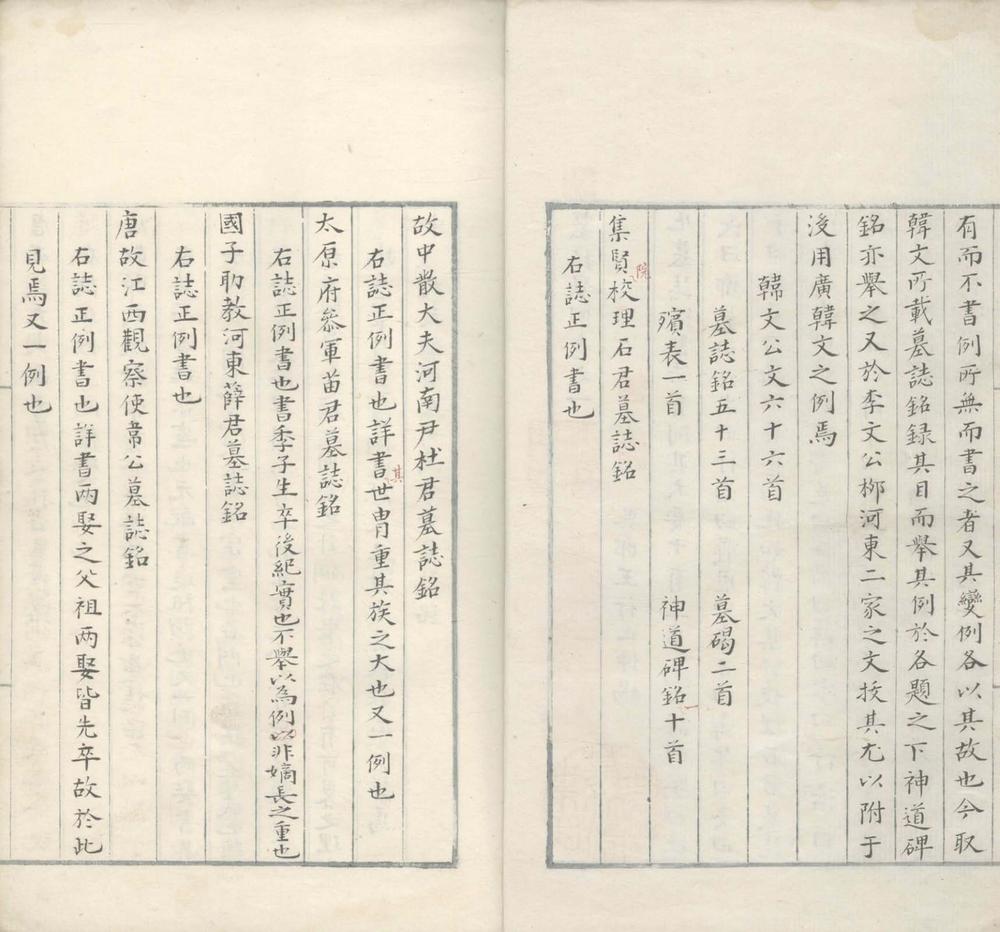 有而不書例所無而書之者又其變例各以其故也今取
韓文所載墓誌銘録其目而舉其例於各題之下神道碑
銘亦舉之又於李文公柳河東二家之文拔其尤以附于
後用廣韓文之例焉
韓文公文六十六首
墓誌銘五十三首　墓碣二首
殯表一首　神道碑銘十首
集賢院校理石君墓誌銘
右誌正例書也
故中散大夫河南尹杜君墓誌銘
右誌正例書也詳書其世胄重其族之大也又一例也
太原府叅軍苗君墓誌銘
右誌正例書也書季子生卒後紀實也不舉以為例以非嫡長之重也
國子助教河東薛君墓誌銘
右誌正例書也
唐故江西觀察使韋公墓誌銘
右誌正例書也詳書两娶之父祖两娶皆先卒故於此
見焉又一例也